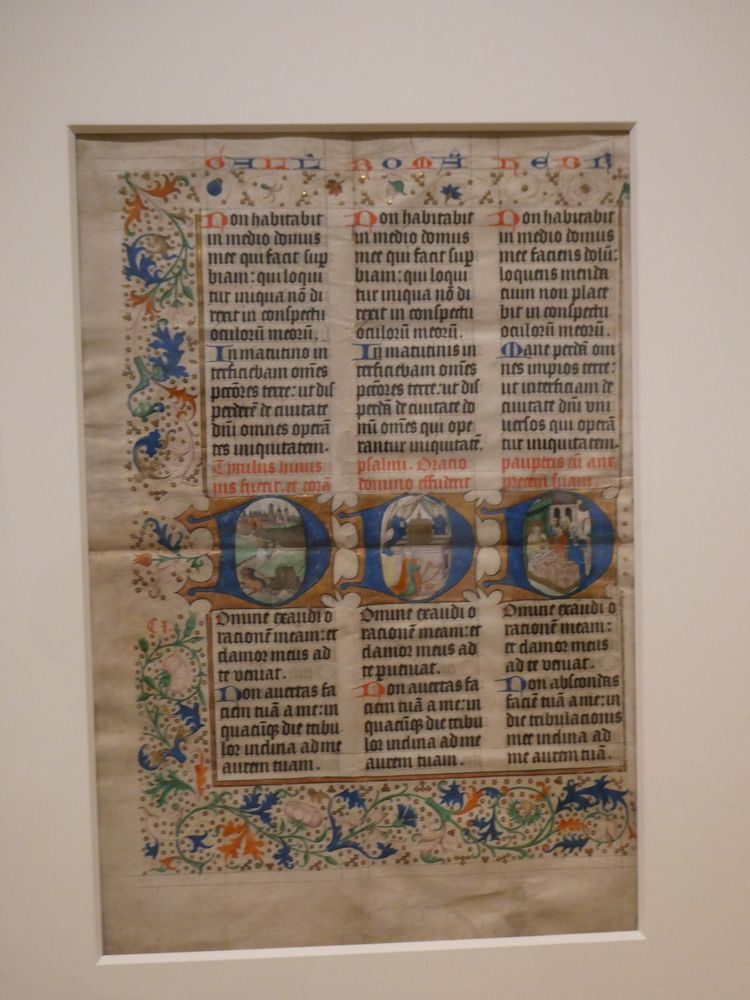 GALL ROMA HEBR
Non habitabit
in medio domus
mee qui facit sup
biam: qui loqui
tur iniqua nō di
rexit in conspectu
oculorū meorū.
In matutino in
terficiebam om̄es
pctōres terre: ut dis
perderē de ciuitate
dn̄i omnes operā
tes iniquitatem.
Tytulus huius
ius fuerit. et corā
Domine exaudi o
rationē meam: et
clamor meus ad
te veniat.
Non auertas fa
ciem tuā a me: in
quacūqz die tribu
lor inclina ad me
aurem tuam.
Non habitabit
in medio domus
mee qui facit sup
biam: qui loqui
tur iniqua nō di
rexit in conspectu
oculorū meorū.
In matutinis in
terficiebam om̄es
pctōres terre: ut dis
perdā de ciuitate do
mī om̄es qui ope
rantur iniquitatē.
psalmi. Oratio
domino effuderit
Domine exaudi o
rationē meam: et
clamor meus ad
te pueniat.
Non auertas fa
ciem tuā a me: in
quacūqz die tribu
lor inclina ad me
aurem tuam.
Non habitabit
in medio domus
mee faciens dolū:
loquens menda
cium non place
bit in conspectu
oculorū meorū.
Mane perdā om
nes impios terre:
ut interficiam de
ciuitate dn̄i vni
uersos qui operā
tur iniquitatem.
pauperis cū anx
precem suam.
CI
Domine exaudi o
rationē meam:
et clamor meus
ad te veniat.
Non abscondas
faciē tuā a me: in
die tribulacionis
mee inclina ad
me aurem tuā.